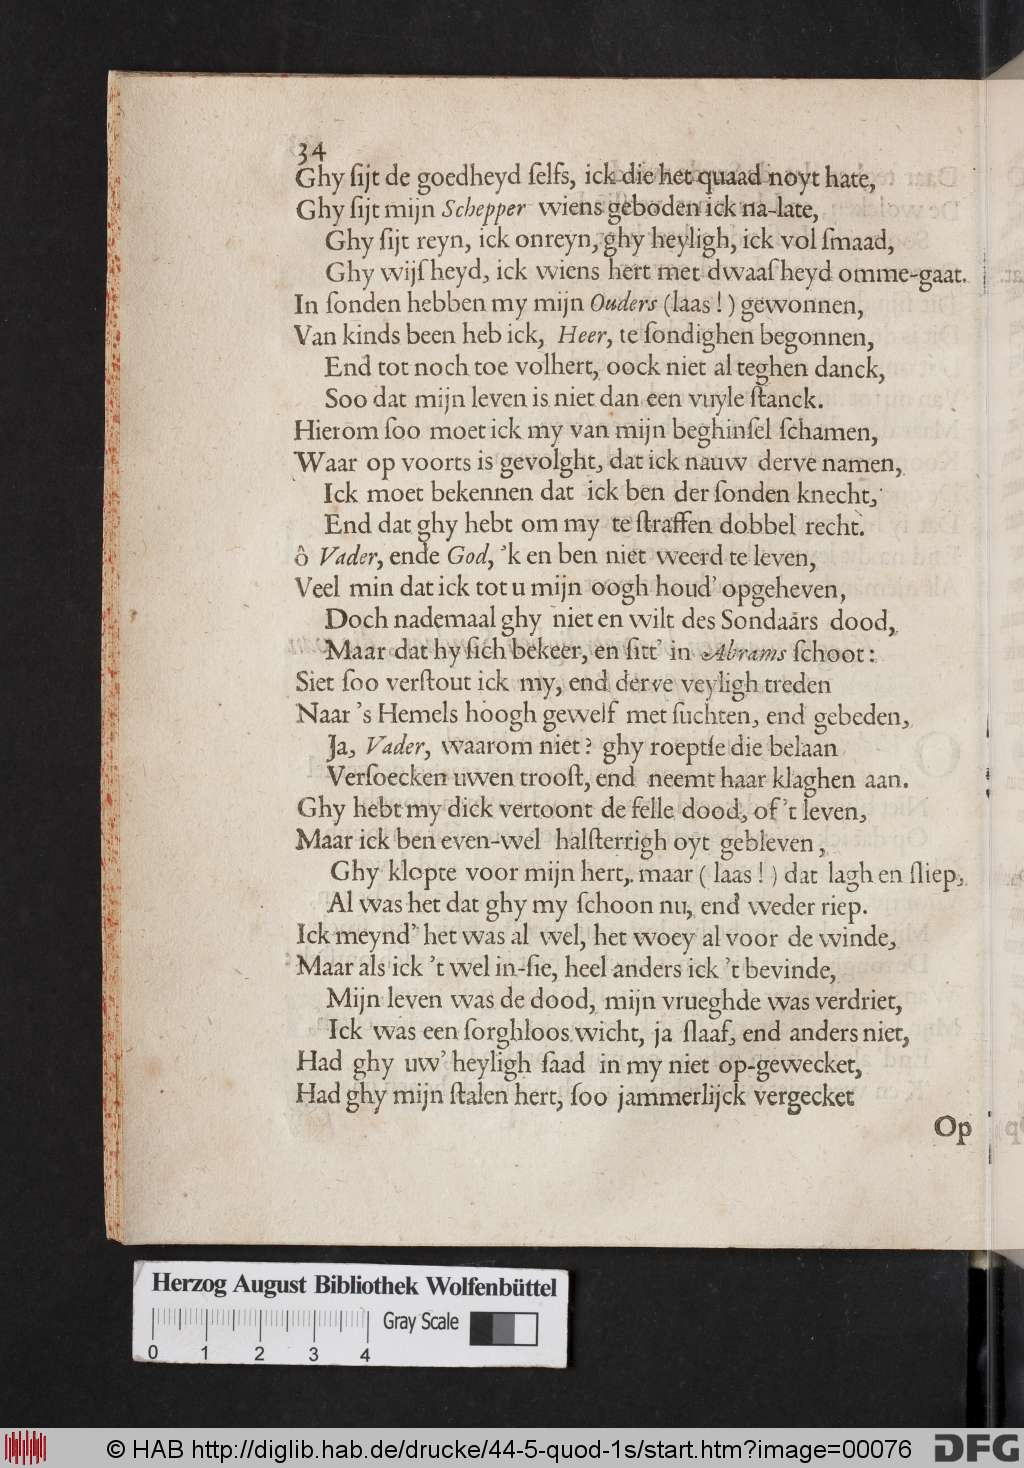 34
Ghy ſijt de goedheyd ſelfs, ick die het quaad noyt hate,
Ghy ſijt mijn Schepper wiens geboden ick na-late,
Ghy ſijt reyn, ick onreyn, ghy heyligh, ick vol ſmaad,
Ghy wijſheyd, ick wiens hert met dwaaſheyd omme-gaat.
In ſonden hebben my mijn Ouders (laas!) gewonnen,
Van kinds been heb ick, Heer, te ſondighen begonnen,
End tot noch toe volhert, oock niet al teghen danck,
Soo dat mijn leven is niet dan een vuyle ſtanck.
Hierom ſoo moet ick my van mijn beghinſel ſchamen,
Waar op voorts is gevolght, dat ick nauw derve namen,
Ick moet bekennen dat ick ben der ſonden knecht,
End dat ghy hebt om my te ſtraffen dobbel recht.
ô Vader, ende God, 'k en ben niet weerd te leven,
Veel min dat ick tot u mijn oogh houd' opgeheven,
Doch nademaal ghy niet en wilt des Sondaars dood,
Maar dat hy ſich bekeer, en ſitt' in Abrams ſchoot:
Siet ſoo verſtout ick my, end derve veyligh treden
Naar 's Hemels hoogh gewelf met ſuchten, end gebeden,
Ja, Vader, waarom niet? ghy roeptſe die belaan
Verſoecken uwen trooſt, end neemt haar klaghen aan.
Ghy hebt my dick vertoont de felle dood, of 't leven,
Maar ick ben even-wel halſterrigh oyt gebleven,
Ghy klopte voor mijn hert, maar (laas!) dat lagh en ſliep,
Al was het dat ghy my ſchoon nu, end weder riep.
Ick meynd' het was al wel, het woey al voor de winde,
Maar als ick 't wel in-ſie, heel anders ick 't bevinde,
Mijn leven was de dood, mijn vrueghde was verdriet,
Ick was een ſorghloos wicht, ja ſlaaf, end anders niet,
Had ghy uw' heyligh ſaad in my niet op-gewecket,
Had ghy mijn ſtalen hert, ſoo jammerlijck vergecket
Op
Herzog August Bibliothek Wolfenbüttel
Gray Scale
0 1 2 3 4
© HAB http://diglib.hab.de/drucke/44-5-quod-1s/start.htm?image=00076
DFG